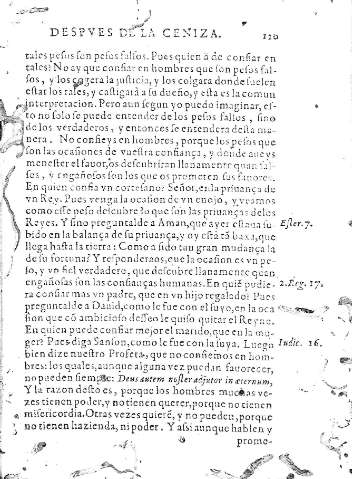 DESPVES DE LA CENIZA. 120
tales pesos son pesos falsos. Pues quien â de confiar en
tales? No ay que confiar en hombres que son pesos fal-
sos, y los cogera la justicia, y los colgara donde suelen
estar los tales, y castigarâ a su dueño, y esta es la comun
interpretacion. Pero aun segun yo puedo imaginar, es-
to no solo se puede entender de los pesos falsos, sino
de los verdaderos, y entonces se entendera desta ma
nera. No confieys en hombres, porque los pesos que
son las ocasiones de vuestra confiança, y donde aueys
menester el fauor, os descubriran llanamente quan fal-
sos, y engañosos son los que os prometen sus fauores.
En quien confia vn cortesano? Señor, en la priuança de
vn Rey. Pues venga la ocasion de vn enojo, y veamos
como esse peso descubre lo que son las priuanças de los
Reyes. Y sino preguntalde a Aman, que ayer estaua su Ester. 7.
bido en la balança de su priuança, y oy està tã baxa, que
llega hasta la tierra: Como a sido tan gran mudança la
de su fortuna? Y responderaos, que la ocasion es vn pe-
so, y vn fiel verdadero, que descubre llanamente quan
engañosas son las confianças humanas. En quiê pudie- 2. Reg. 17.
ra confiar mas vn padre, que en vn hijo regalado? Pues
preguntalde a Dauid, como le fue con el suyo, en la oca
sion que cõ ambicioso desseo le quiso quitar el Reyno.
En quien puede confiar mejor el marido, que en la mu-
ger? Pues diga Sanson, como le fue con la suya. Luego Iudic. 16.
bien dize nuestro Profeta, que no confiemos en hom-
bres: los quales, aunque alguna vez puedan fauorecer,
no pueden siempre: Deus autem noster adjutor in æternum,
Y la razon desto es, porque los hombres muchas ve-
zes tienen poder, y no tienen querer, porque no tienen
misericordia. Otras vezes quierê, y no pueden, porque
no tienen hazienda, ni poder. Y assi aunque hablen y
prome-